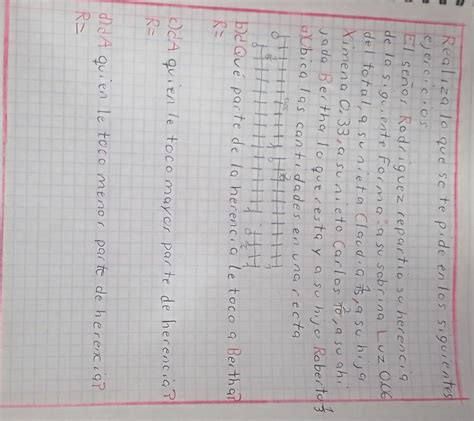 Realiza lo que se te pide en los siguientes
ejercicios
El señor Rodriguez repartio su herencia
de la siguiente forma: a su sobrina Luz 0.06
del total, a su nieta Claudia, a su hija
Ximena 0.33, a su nieto Carlos 2/10, a su ahi
jada Bertha lo que resta y a su hijo Roberto
a) Ubica las cantidades en una recta
b) ¿Qué parte de la herencia le toco a Bertha?
R=
c) ¿A quien le toco mayor parte de herencia?
R=
d) ¿A quien le toco menor parte de herencia?
R=